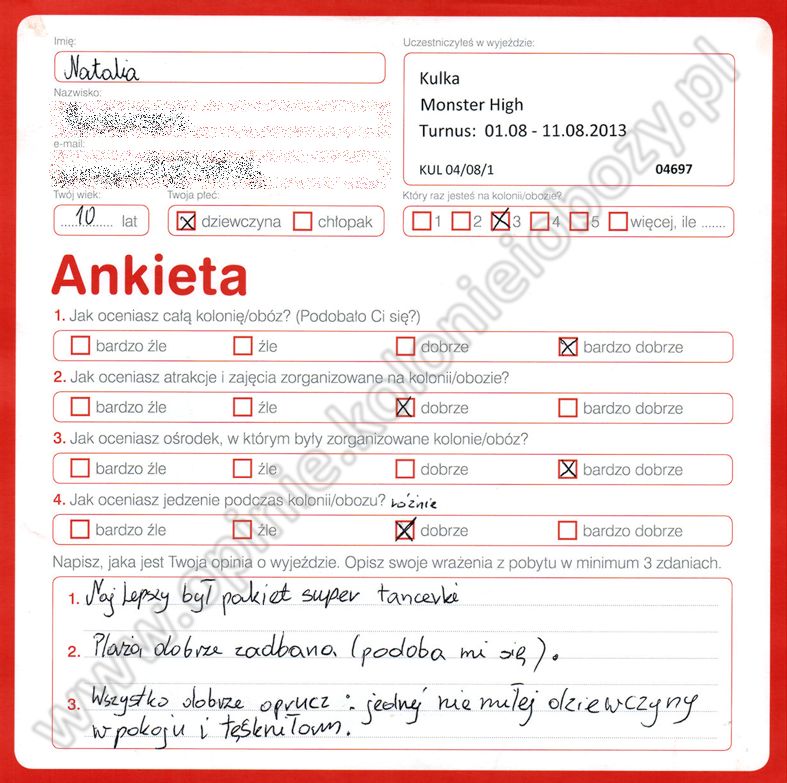 Imię:
Natalia
Nazwisko:
e-mail:
Uczestniczyłeś w wyjeździe:
Kulka
Monster High
Turnus: 01.08 - 11.08.2013
KUL 04/08/1 04697
Twój wiek:
10 lat
Twoja płeć:
dziewczyna chłopak
Który raz jesteś na kolonii/obozie?
1 2 3 4 5 więcej, ile .......
Ankieta
1. Jak oceniasz całą kolonię/obóz? (Podobało Ci się?)
bardzo źle źle dobrze bardzo dobrze
2. Jak oceniasz atrakcje i zajęcia zorganizowane na kolonii/obozie?
bardzo źle źle dobrze bardzo dobrze
3. Jak oceniasz ośrodek, w którym były zorganizowane kolonie/obóz?
bardzo źle źle dobrze bardzo dobrze
4. Jak oceniasz jedzenie podczas kolonii/obozu? różnie
bardzo źle źle dobrze bardzo dobrze
Napisz, jaka jest Twoja opinia o wyjeździe. Opisz swoje wrażenia z pobytu w minimum 3 zdaniach.
1. Naj lepszy był pakiet super tancerki
2. Plaża dobrze zadbana (podoba mi się).
3. Wszystko dobrze oprucz : jednej nie miłej dziewczyny
w pokoju i tęskniłam.
www.opinie.kolonieiobozy.pl